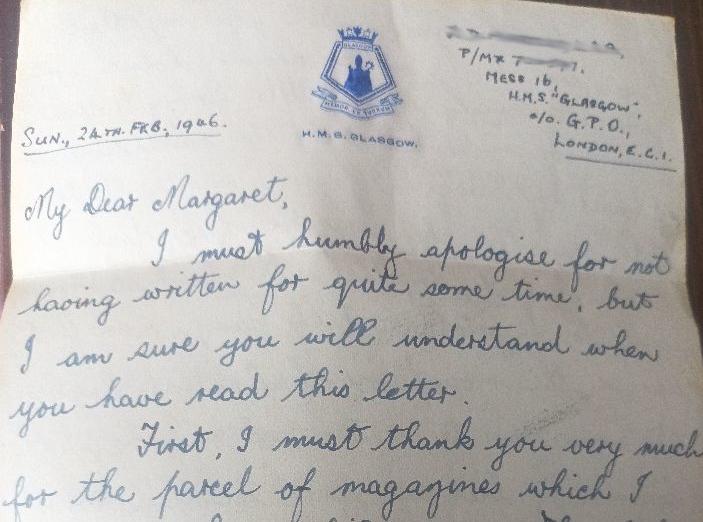 P/MX
MESS 16,
H.M.S. "GLASGOW",
c/o. G.P.O.,
LONDON, E.C.1.
GLASGOW
H.M.S. GLASGOW.
SUN., 24TH. FEB., 1946.
My Dear Margaret,
I must humbly apologise for not
having written for quite some time, but
I am sure you will understand when
you have read this letter.
First, I must thank you very much
for the parcel of magazines which I